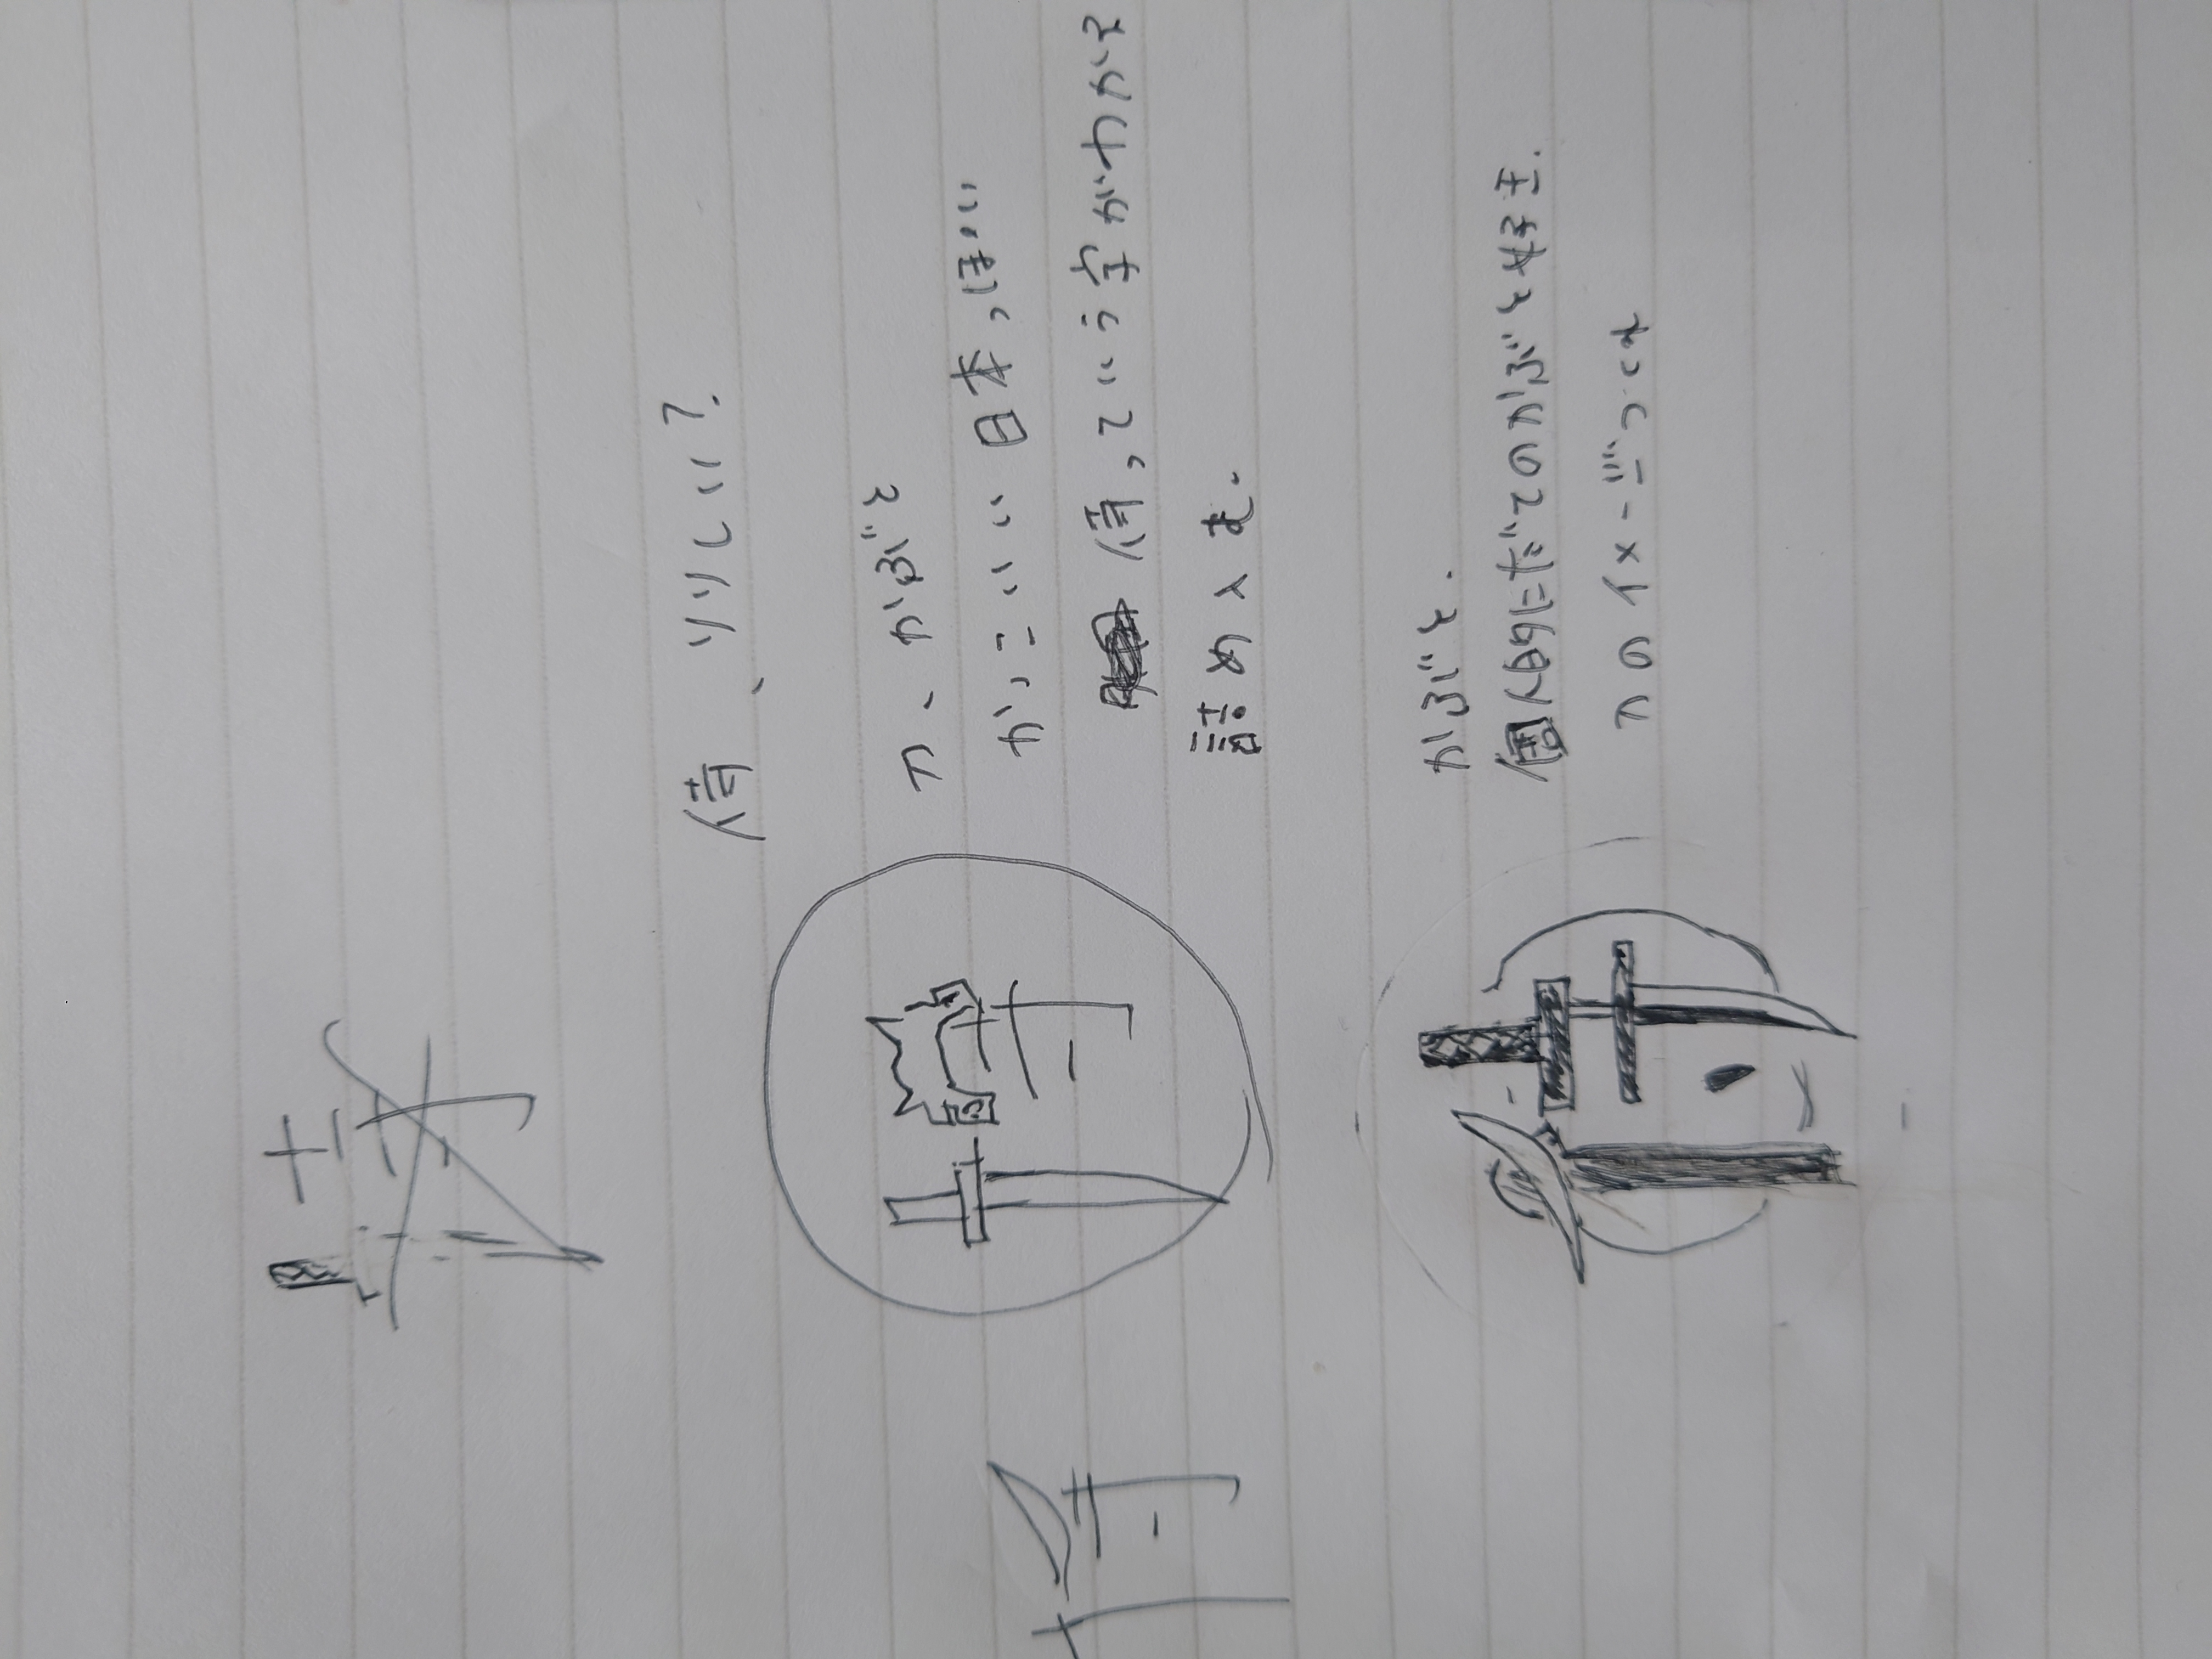 侍、りりしい?
刀、かぶと
かっこいい 日本っぽい
侍っていう字がわかる
詰め込む.
かぶと.
個人的にだてのかぶと好き.
刀のイメージつくれ
侍
侍